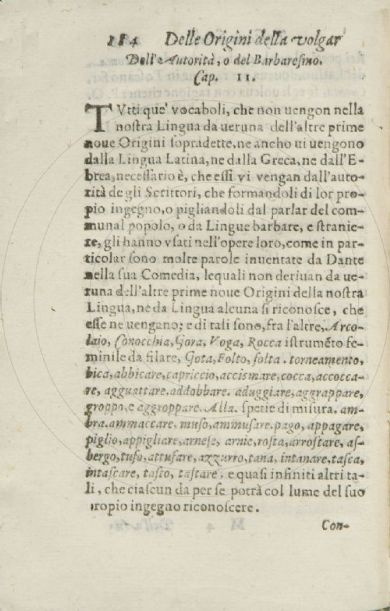 184 Delle Origini della volgar
Dell'Autorità, o del Barbaresmo.
Cap. 11.
TVtti que' vocaboli, che non uengon nella
nostra Lingua da ueruna dell'altre prime
noue Origini sopradette, ne ancho ui uengono
dalla Lingua Latina, ne dalla Greca, ne dall'E-
brea, necessario è, che essi vi vengan dall'auto-
rità de gli Scrittori, che formandoli di lor pro-
pio ingegno, o pigliandoli dal parlar del com-
munal popolo, o da Lingue barbare, e stranie-
re, gli hanno vsati nell'opere loro, come in par-
ticolar sono molte parole inuentate da Dante
nella sua Comedia, lequali non deriuan da ue-
runa dell'altre prime noue Origini della nostra
Lingua, ne da Lingua alcuna si riconosce, che
esse ne uengano; e di tali sono, fra l'altre, Arco-
laio, Conocchia, Gora, Voga, Rocca istrumẽto fe-
minile da filare, Gota, Folto, folta, torneamento,
bica, abbicare, capriccio, accismare, cocca, accocca-
re, agguattare. addobbare. aduggiare, aggrappare,
groppo, e aggroppare. Alla. spetie di misura. am-
bra. ammaccare. muso, ammusare. pago, appagare,
piglio, appigliare, arnese, arnie, rosta, arrostare, as-
bergo, tufo, attufare, azzurro, tana, intanare. tasca,
intascare, tasto, tastare, e quasi infiniti altri ta-
li, che ciascun da per se potrà col lume del suo
propio ingegno riconoscere.
Con-